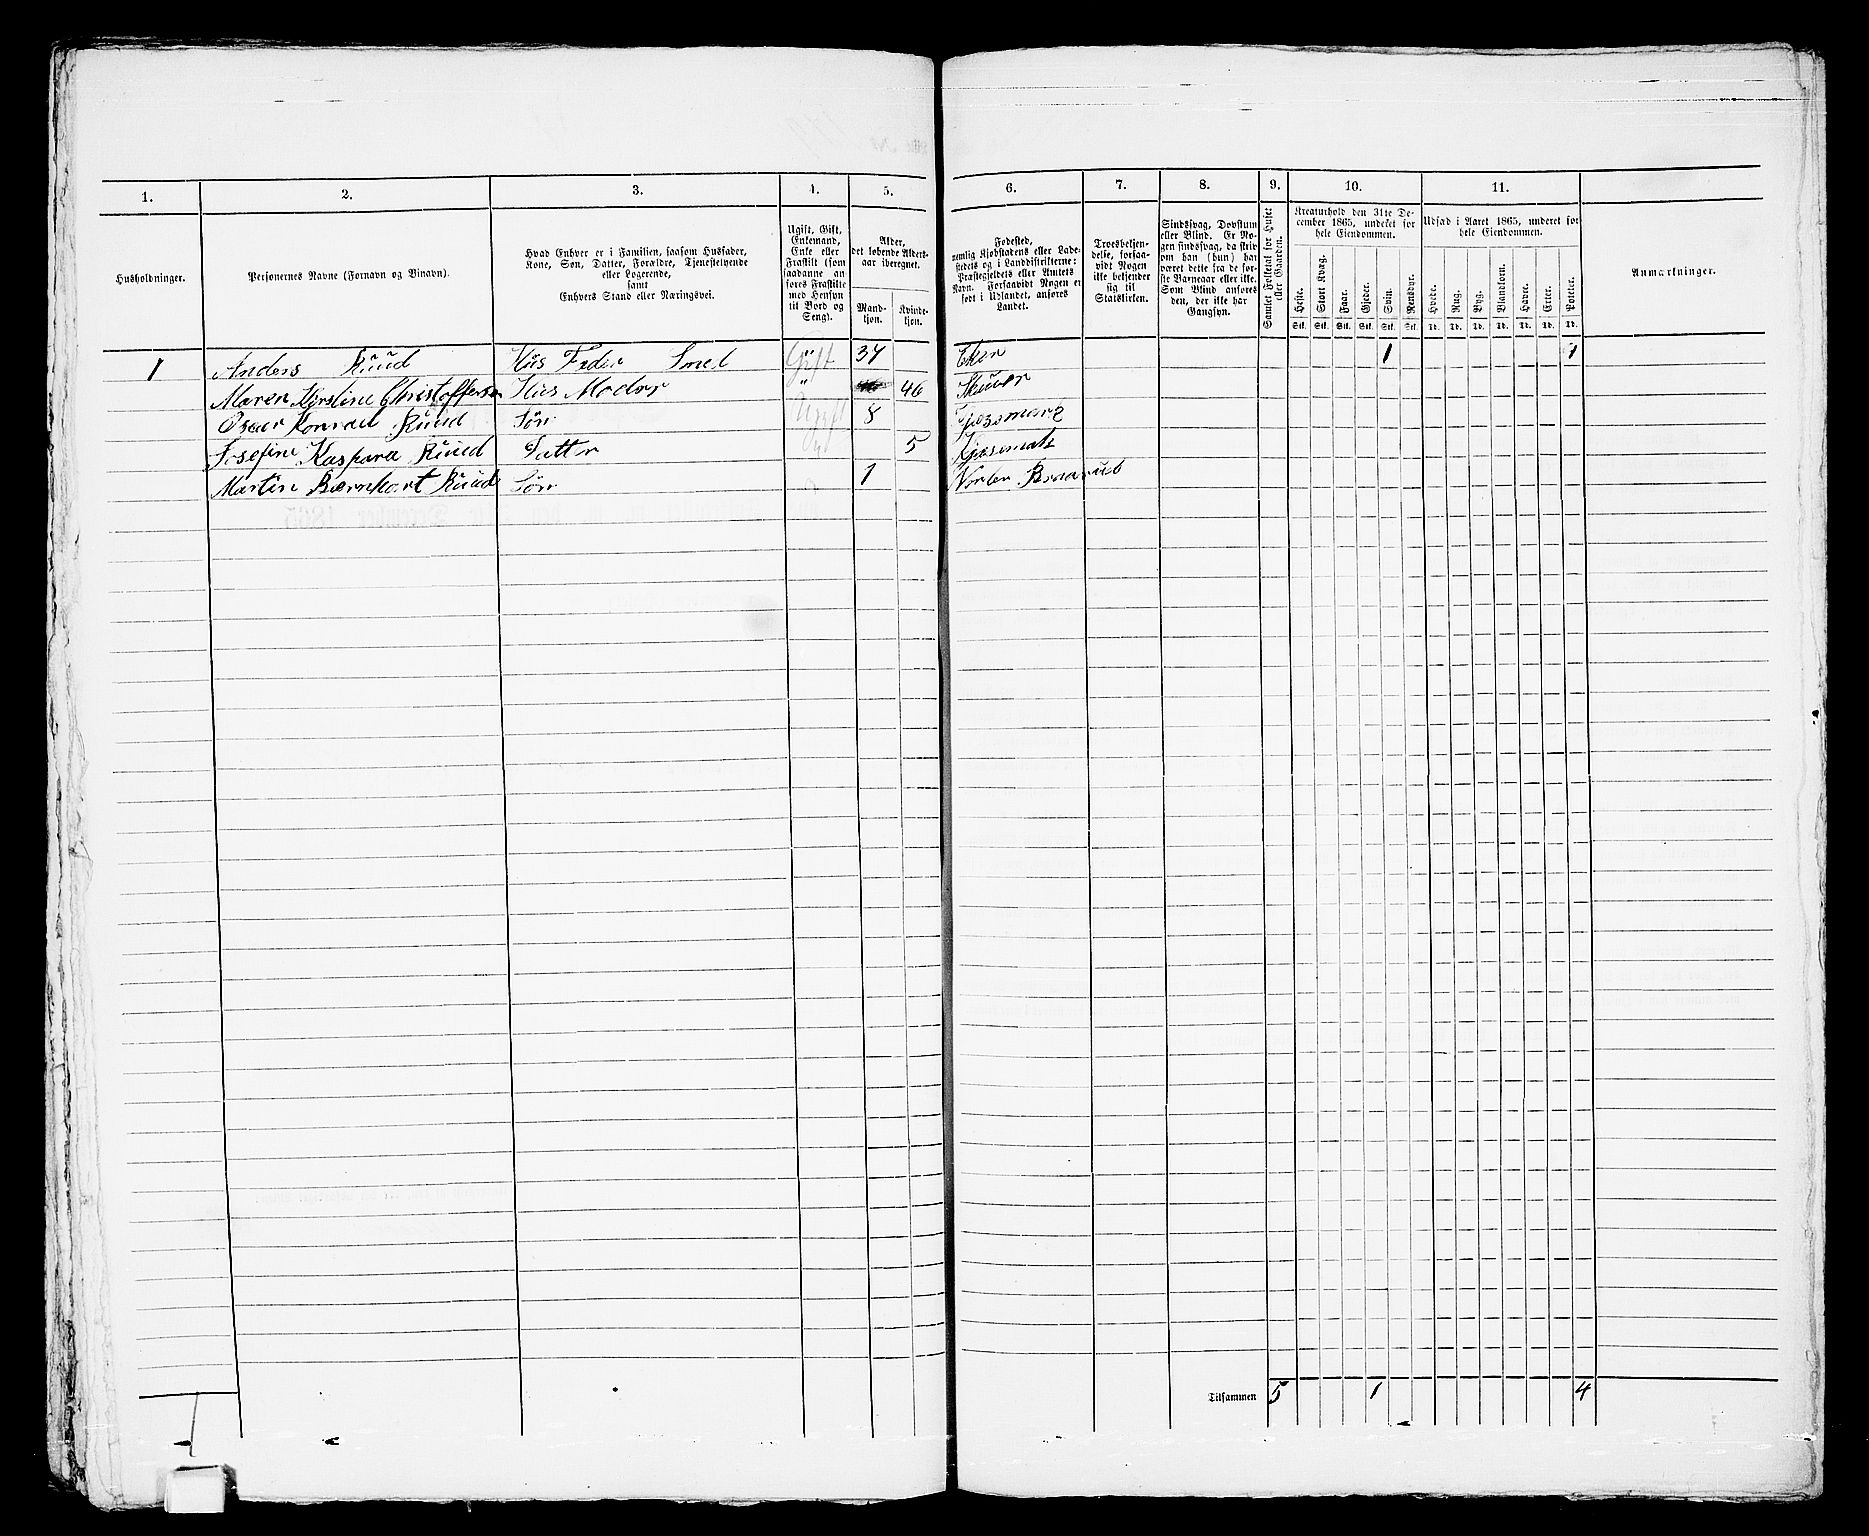 1. 2. 3. 4. 5. 6. 7. 8. 9. 10. 11.
Husholdninger.
Personernes Navne (Fornavn og Binavn).
Hvad Enhver er i Familien, saasom Husfader,
Kone, Søn, Datter, Forældre, Tjenestetyende
eller Logerende,
samt
Enhvers Stand eller Næringsvei.
Ugift, Gift,
Enkemand,
Enke eller
Fraskilt (som
saadanne an-
føres Fraskilte
med Hensyn
til Bord og
Seng).
Alder,
det løbende Alders-
aar iberegnet.
Mand-
kjøn.
Kvinde-
kjøn.
Fødested,
nemlig Kjøbstadens eller Lade-
stedets og i Landdistrikterne:
Præstegjeldets eller Amtets
Navn. Forsaavidt Nogen er
født i Udlandet, anføres
Landet.
Troesbekjen-
delse, forsaa-
vidt Nogen
ikke bekjender
sig til
Statskirken.
Sindssvag, Døvstum
eller Blind. Er No-
gen sindssvag, da skriv
om han (hun) har
været dette fra de før-
ste Barneaar eller ikke.
Som Blind anføres
den, der ikke har
Gangsyn.
Samlet Folketal for Huset
eller Gaarden.
Kreaturhold den 31te De-
cember 1865, underet for
hele Eiendommen.
Heste. Stort Kvæg. Faar. Gjeder. Sviin. Rensdyr.
Stk. Stk. Stk. Stk. Stk. Stk.
Udsæd i Aaret 1865, underet for
hele Eiendommen.
Hvede. Rug. Byg. Blandkorn. Havre. Erter. Poteter.
Td. Td. Td. Td. Td. Td. Td.
Anmærkninger.
1 Anders Ruud Hüs Fader Smed Gift 34 Eker 1 1
Maren Kjerstine Christoffersen Hüs Moder " 46 Skuver
Konrad Ruud Søn Ugift 8
Josefine Kaspara Ruud Datter 5
Martin Bærnhart Ruud Søn 1
Tilsammen 5 1 4